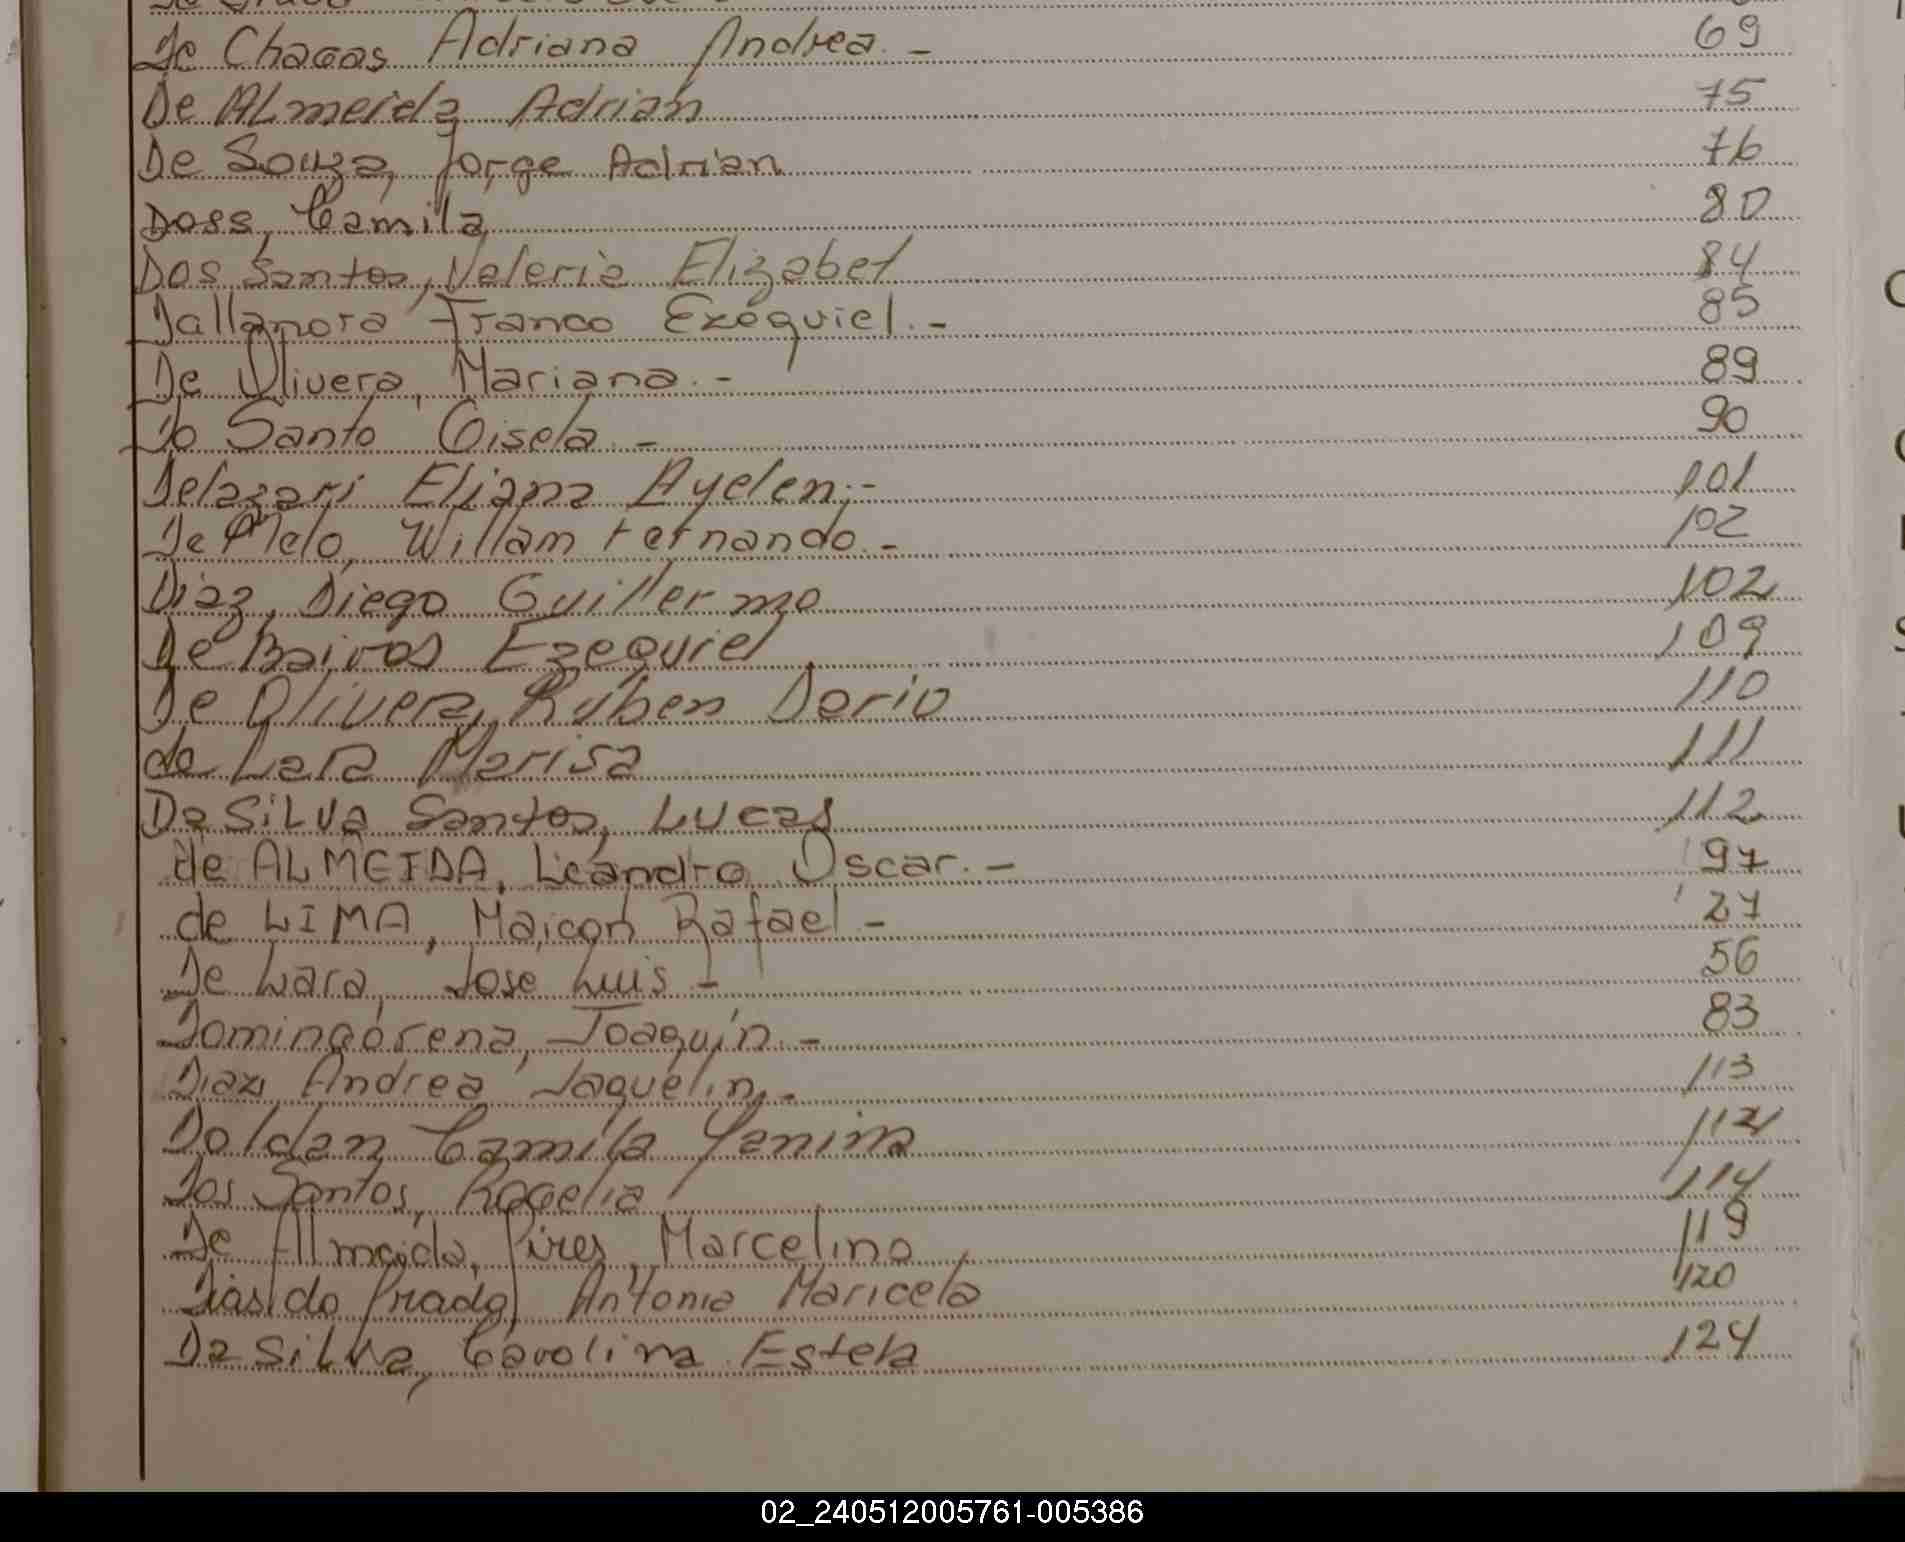 De Chagas Adriana Andrea.- 69
De ALmeida Adrián 75
De Souza, Jorge Adrian 76
Doss, Camila 80
Dos Santos, Valeria Elizabet 84
Dallanora Franco Ezequiel.- 85
De Olivera, Mariana.- 89
Do Santo Gisela.- 90
Delazari Eliana Ayelen.- 101
De Melo, Willam Fernando.- 102
Diaz, Diego Guillermo 102
De Bairos Ezequiel 109
De Olivera, Rúben Dario 110
de Lara Marisa 111
Da SiLVa Santos, Lucas 112
de ALMEIDA, Leandro Oscar.- 97
de LIMA, Maicon Rafael- 27
De Lara, Jose Luis- 56
Domingorena, Joaquín.- 83
Diaz, Andrea Jaquelin.- 113
Doldan Camila Yanina 112
Dos Santos, Rogelia 114
De Almeida, Pires, Marcelino 119
Dias do Prado Antonia Maricela 120
Da SiLVa, Carolina Estela 124
02_240512005761-005386